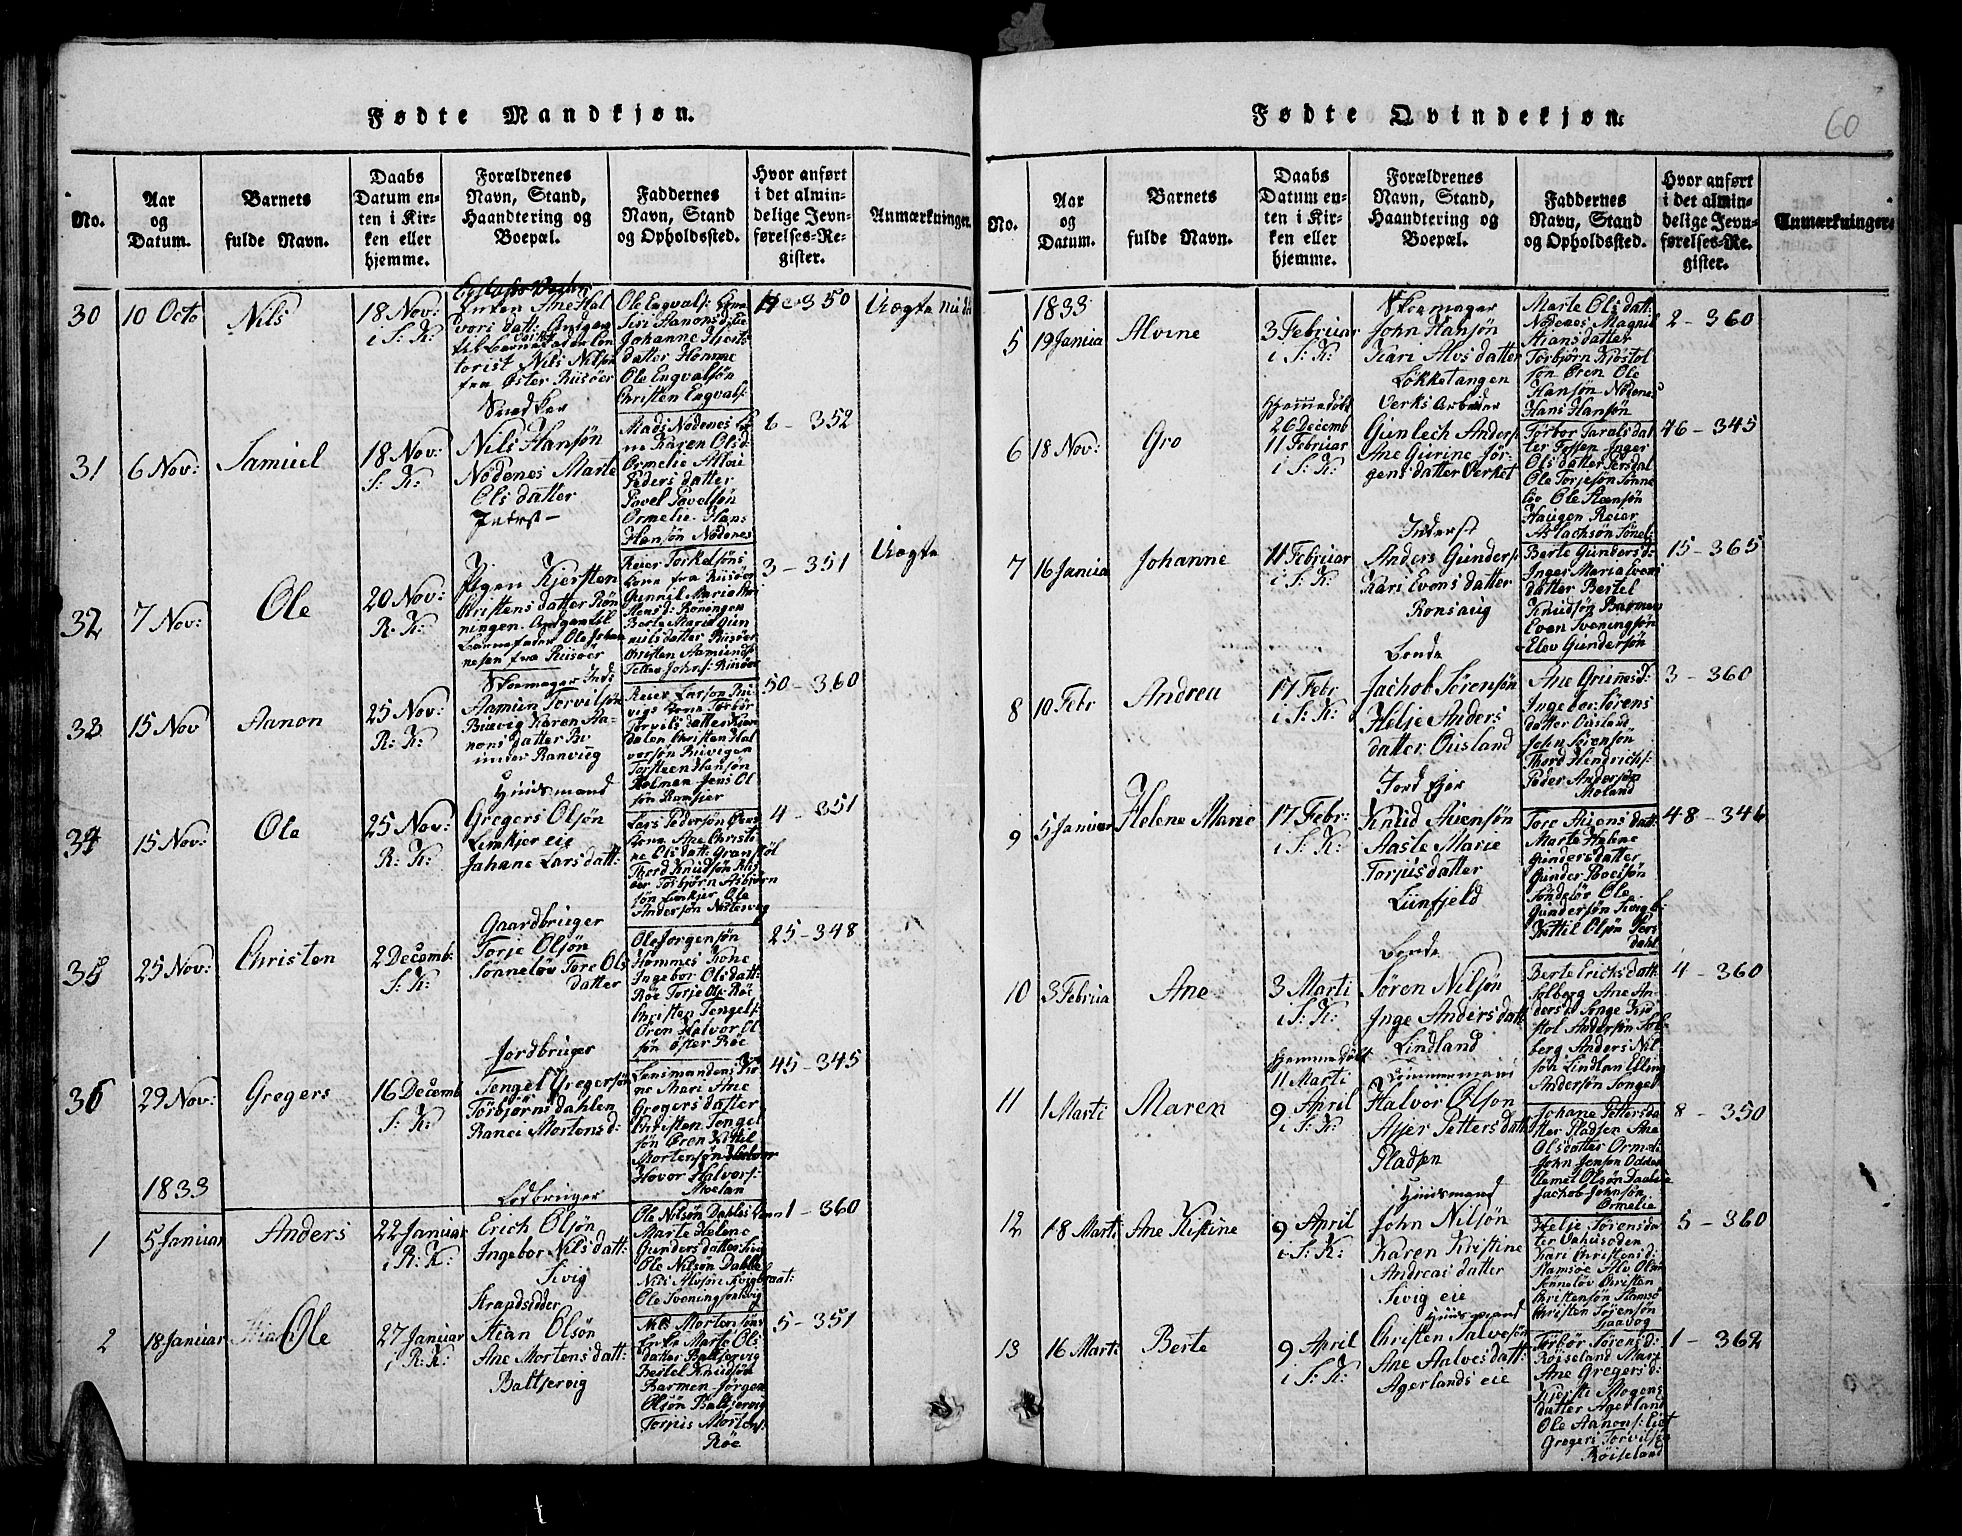 Fødte Mandkjøn.
No.
Aar
og
Datum.
Barnets
fulde Navn.
Daabs
Datum en-
ten i Kir-
ken eller
hjemme.
Forældrenes
Navn, Stand,
Haandtering og
Boepæl.
Faddernes
Navn, Stand
og Opholdssted.
Hvor anført
i det almin-
delige Jevn-
førelses-Re-
gister.
Anmærkninger.
30
10 Octo
Nils
18 Nov:
i S: K:
Enken Ane Hal
vors datt:
torist Nils Nilsøn
fra Øster Riisøer
Ole Engvals:
Siri Aanonsd:
Johanne
datter Homme
Ole Engvalsøn
Christen Engvals:
350
Uægte
31
6 Nov:
Samuel
18 Nov:
S: K:
Snedker
Nils Hansøn
Nodenes Marte
Ols datter
Inderst
Mads Nodenes Ko
ne Karen Olsd:
Ormelie
Peders datter
Povel Povelsøn
Ormelie. Hans
Hansøn Nodenes
6 - 352
32
7 Nov:
Ole
20 Nov:
R. K:
Pigen Kjersten
Christens datter Røn
ningen. Angiven til
Barnefader Ole Johan
nesen fra Riisøer
Reier Torkelsøns
Kone fra Riisøer
Christen Aamunds:
3 - 351
Uægte
33
15 Nov
Aanon
25 Nov:
R: K:
Skoemager Inds
Aamun Torvilsøn
Karen Aa-
nons datter
under Ranvieg
Reier Larsøn
Torvils datter
dalen Christen Hal
vorsøn
Torsteen Hansøn
Holman Jens Ol
søn
50 - 360
34
15 Nov:
Ole
25 Nov:
R: K:
Huusmand
Gregers Olsøn
Limkjer eie
Jahane Lars datt:
Lars Pedersøn
Kone, Ane Christi
ne Ols datt:
Thord Knudsøn
Torbjørn Asbjørn
søn Limkjer Ole
Andersøn
4 - 351
35
25 Nov:
Christen
2 Decemb:
S: K:
Gaardbruger
Torje Olsøn
Sønneløv Tore Ols
datter
Ole Jorgensøn
Hommes Kone
Ingebor Olsdatt:
Røe Torje Ols: Røe
Christen Tengels:
Øren Halvor Ol
søn øster Røe
25 - 348
36
29 Nov:
Gregers
16 Decemb
S: K:
Jordbruger
Tengel Gregersøn
Torbjørnsdahlen
Mortens d:
Lensmandens Ko
ne Mari Ane
Gregers datter
Christen Tengel
søn Øren Kittel
Mortensøn
Hovor Halvors:
Moelan
45 - 345
1833
1
5 Januar
Anders
22 Januar
i R: K:
Lodbruger
Erich Olsøn
Ingebor Nils datt:
Sivig
Ole Nilsøn Dables
Marte Helene
Gunders datter
Ole Nilsøn Dable
Nils Alvsøn
Ole Sveningsøn
1 - 360
2
18 Januar
Ole
27 Januar
i R: K:
Strandsidder
Stian Olsøn
Ane Mortens datt:
Baltjervig
Nils Mortensøns
Marte Ols
datter Baltjervig
Bertel Knudsøn
Barmen Jørgen
Olsøn Baltjervig
Torjus Mortens:
Røe
5 - 351
Fødte Qvindekjøn.
60
No.
Aar
og
Datum.
Barnets
fulde Navn.
Daabs
Datum en-
ten i Kir-
ken eller
hjemme.
Forældrenes
Navn, Stand,
Haandtering og
Boepæl.
Faddernes
Navn, Stand
og Opholdssted.
Hvor anført
i det almin-
delige Jevn-
førelses-Re-
gister.
Anmærkninger
1833
5
19 Janua
Alvine
3 Februar
i S: K:
Skoemager
John Hansøn
Kari Alvs datter
Løkketangen
Marte Ols datt:
Nodenes Magnil
Stians datter
Torbjørn Kjøstol
søn Øren Ole
Hansøn Nodenes
Hans Hansøn
2 - 360
6
18 Nov:
Gro
Hjemmedøbt
26 Decemb
11 Februar
i S: K:
Verks Arbeider
Gunlech Anders:
Ane Gurine Jør-
gens datter Verket
Torbor Taralsdat
ter Fossen Inger
Ols datter
Ole Torjesøn Sønne
løv Ole Steensøn
Haugen Reier
Aslachsøn Sønel:
46 - 345
7
16 Janua
Johanne
11 Februar
i S: K:
Inderst
Anders Gunders:
Kari Evens datter
Ronsaug
Berte Gunders d:
Inger Maria Evens
datter Bertel
Knudsøn Barmen
Even Sveningsøn
Elev Gundersøn
15 - 365
8
10 Febr
Andrea
17 Febr
i S: K:
Bonde
Jachob Sørensøn
Helje Anders
datter Ousland
Ane Gunes d:
Ingebor Sørens
datter Ousland
John Sørensøn
Thord Hendrichs:
Peder Andersøn
Moland
3 - 360
9
5 Januar
Helene Marie
17 Febr:
i S: K:
Jord Ejer
Knud Auensøn
Aasle Marie
Torjus datter
Lunfjeld
Tore Auens datt:
Marte Helene
Gunders datter
Gunder Povelsøn
Sønneløv Ole
Gundersøn
Kittil Olsøn
dahl
48 - 346
10
3 Februa
Ane
3 Marti
i S: K:
Bonde
Søren Nilsøn
Inge Anders datt:
Lindland
Berte Erichs datt:
Solberg Ane An-
ders d: Songe Kjø
stol Andersøn Sol-
berg Anders Nil
søn Lindlan Elling
Andersøn Songe
4 - 360
11
1 Marti
Maren
Hjemmedøbt
11 Marti
9 April
i S: K:
Halvor Olsøn
Asser Petters datt:
Pladsen
Johane Petters da
tter Pladsen Ane
Ols datter Orme
John Jensøn Odden
Clemet Olsøn
Jachob Johnsøn
Ormelie
8 - 350
12
18 Marti
Ane Kistine
9 April
i S: K:
Huusmand
John Nilsøn
Karen Kristine
Andreas datter
Sivig eie
Helje Sørens da
tter
Kari Christens d:
Stamsøe Alv Olsøn
Sønneløv Christen
Christensøn Stamsø
Christen Sørensøn
5 - 360
13
16 Marti
Berte
9 April
i S: K:
Huusmand
Christen Salvesøn
Ane Aalves datt:
Agerlands eie
Torbor Sørens d:
Røiseland Mari
Ane Gregers d:
Kjersti Mogens
datter Agerland
Ole Aanons:
Gregers Torvilsøn
Røiseland
1 - 362